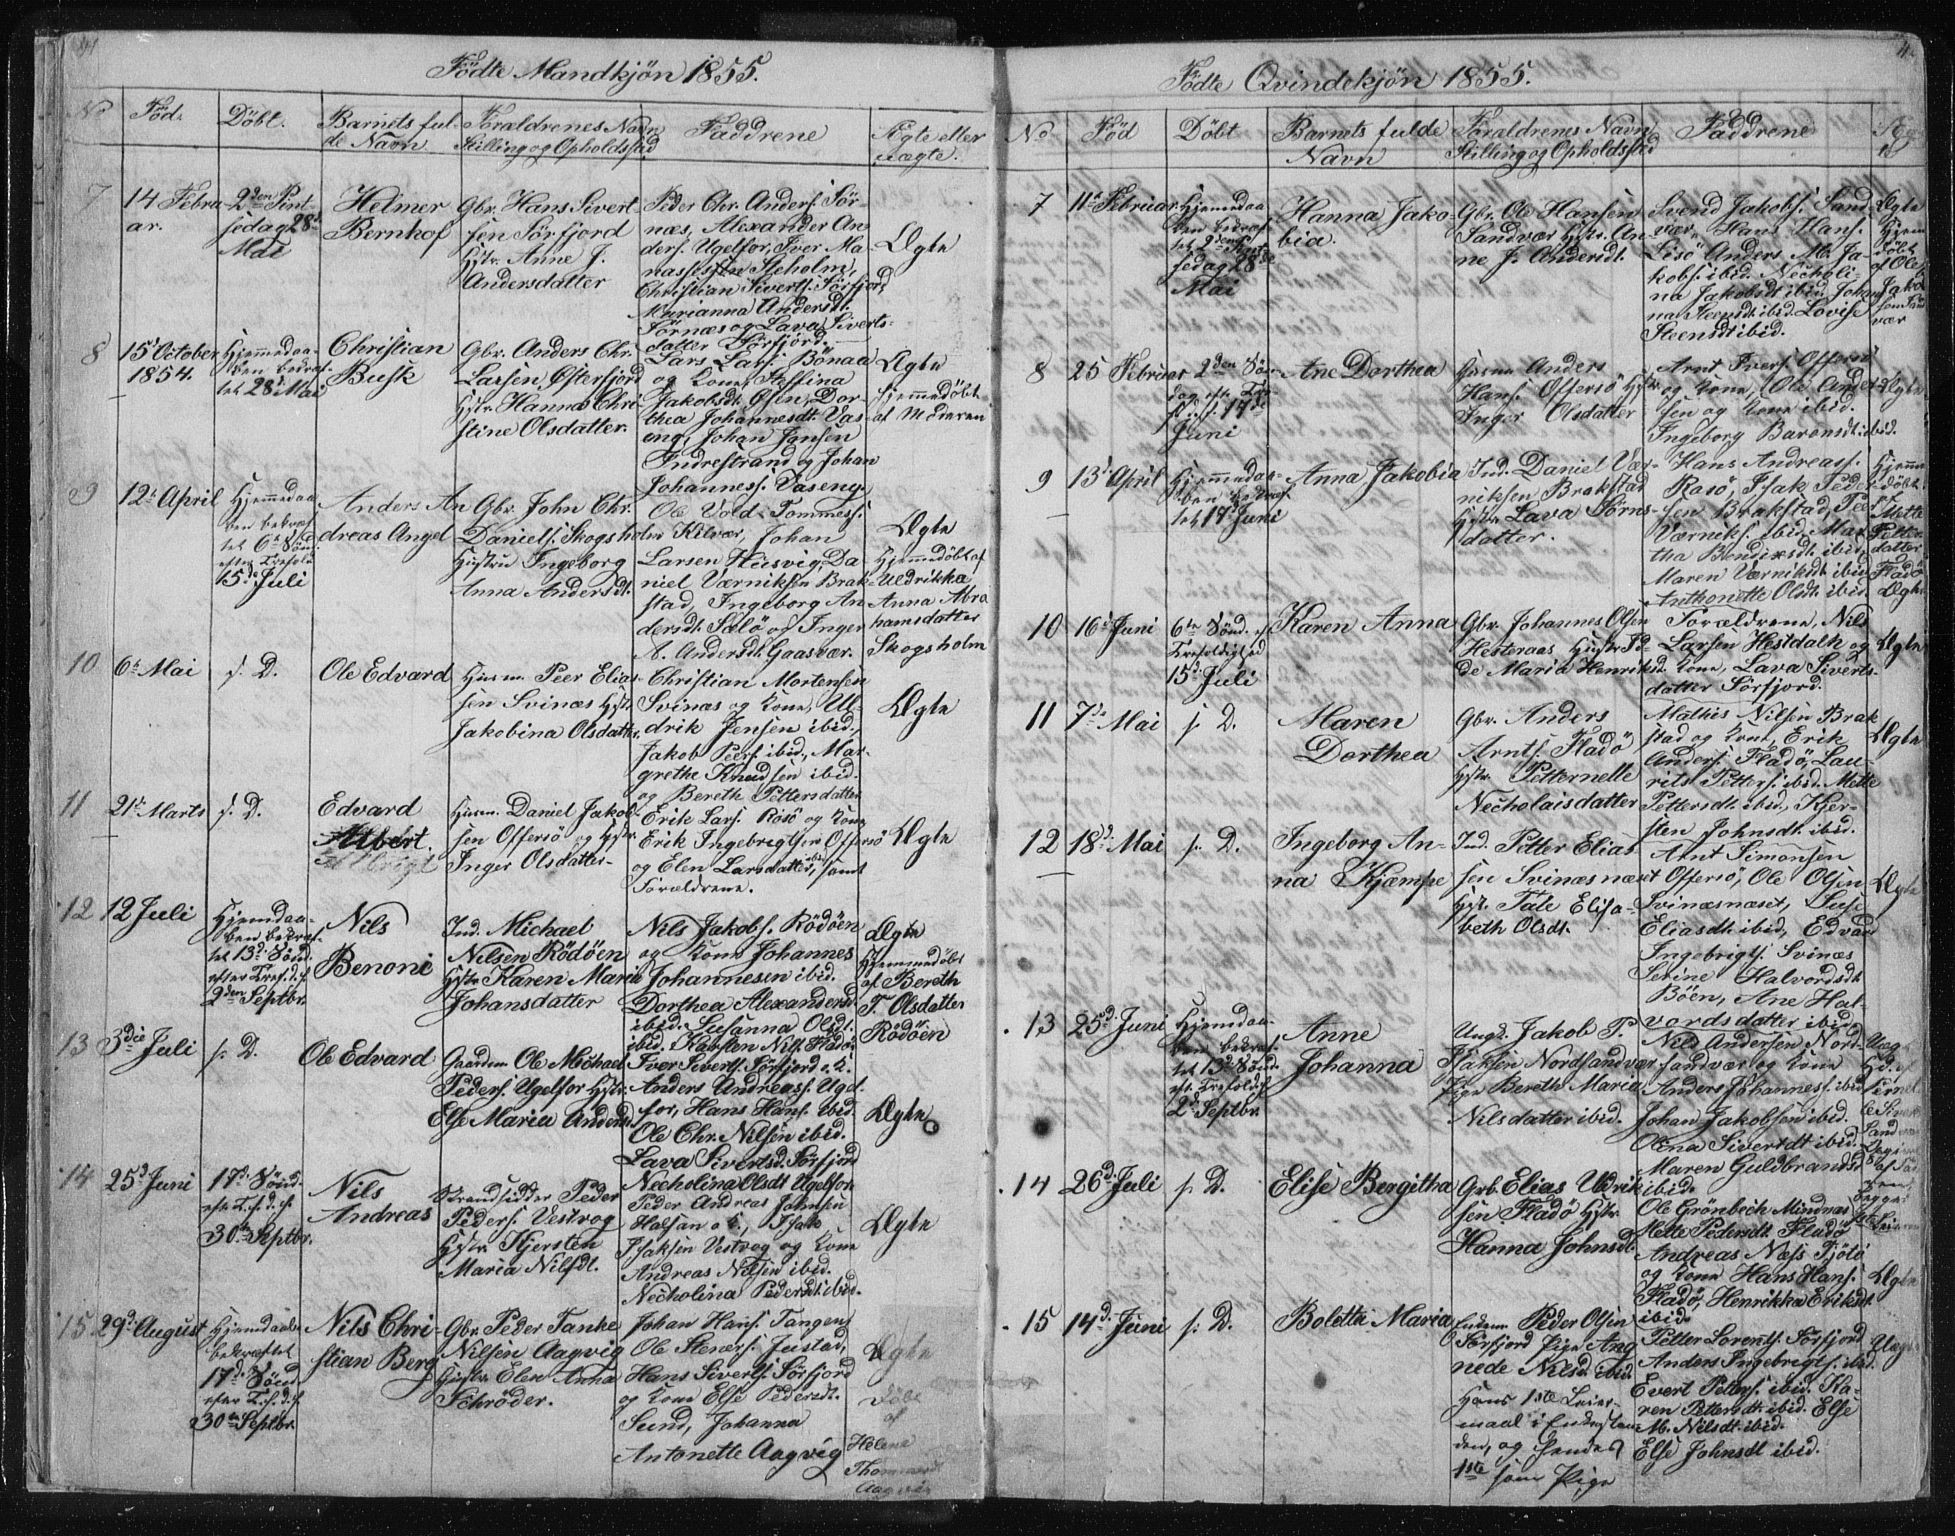 Födte Mandkjön 1855.
No
Föd.
Döbt.
Barnets ful-
de Navn
Forældrenes Navn
Stilling og Opholdsted
Faddrene
Ægte eller
uægte.
7
14 Febru
ar.
2den Pint-
sedag 28d
Mai
Helmer
Bernhof
Gbr. Hans Sivert
sen Sörfjord
Hstr. Anne J.
Andersdatter
Peder Chr. Anders. Sör-
næs, Alexander An
ders. Ugelfor, Iver Ma-
nasses Steholm,
Christian Siverts. Sörfjord,
Marianna Andersdt.
Sörnæs og Lava Siverts-
datter Sörfjord.
Ægte
8
15d October
1854.
Hjemmedaa-
ben bekræf-
tet 28d Mai
Christian
Busk
Gbr. Anders Chr.
Larsen Østerfjord
Hstr. Hanna Chri-
stine Olsdatter.
Lars Lars. Bönaa
og Kone, Steffina
Jakobsdt. Olsen, Dor-
thea Johannesdt. Vas-
eng, Johan Jonsen
Indrestrand og Johan
Johanness. Vaseng.
Ægte
Hjemmedöbt
af Moderen
9
12te April
Hjemmedaa
ben bekræf-
tet 6te Sönd.
efter Trefold.
15de Juli
Anders An
dreas Angel
Gbr. John Chr.
Daniels. Skogsholm
Hustru Ingeborg
Anna Andersdt.
Ole Vold Tommess.
Kilvær, Johan
Larsen Husvig, Da-
niel Værniksen Brak-
stad, Ingeborg An
dersdt. Salö og Inger
A. Andersdt. Gaasvær.
Ægte
Hjemmedöbt af
Uldrikka
Anna Abra
hamsdatter
Skogsholm
10
6te Mai
s. D.
Ole Edvard
Husm. Peer Elias-
sen Svinæs Hstr.
Jakobina Olsdatter.
Christian Mortensen
Svinæs og Kone, Ul-
drik Jensen ibid.,
Jakob Peers. ibid., Mar-
grethe Knudsen ibid.
og Bereth Pettersdatter
Ægte
11
21de Marts
s. D.
Edvard
Albert.
Husm. Daniel Jakob-
sen Offersö og Hstr.
Inger Olsdatter
Erik Lars. Rosö og Kone
Erik Ingebrigtsen Offersö
og Elen Larsdatter ibd., samt
Forældrene.
Ægte
12
12 Juli
Hjemdaa-
ben bekræf-
tet 13d Sönd.
efter Tref. d. s.
2den Septbr.
Nils
Benoni
Ind. Michael
Nilsen Rödöen
Hstr. Karen Maria
Johansdatter
Nils Jakobs. Rödöen
og Kone Johannes
Johannesen ibid.
Dorthea Alexandersd.
ibid. Susanna Olsdt.
ibid. Karsten Nils. Fladö.
Ægte
Hjemmedöbt
af Bereth
T. Olsdatter
Rödöen
13
3die Juli
s. D.
Ole Edvard
Gaardm. Ole Michael
Peders. Ugelfor Hstr.
Else Maria Andersd.
Iver Siverts. Sörfjord o. K.
Anders Andreass. Ugel-
for, Hans Hans. ibid.
Ole Chr. Nilsen ibid.
Lava Sivertsd. Sörfjord
Necholina Olsdt. Ugelfor.
Ægte
14
25d Juni
17d Sönd-
efter T. s. d. s.
30te Septbr.
Nils
Andreas
Strandsidder Peder
Peders. Vestvog
Hstr. Kjersten
Maria Nilsdt.
Peder Andreas Johnsen
Halsan o. K., Isak
Isaksen Vestvog og Kone
Andreas Nilsen ibid.
Necholina Pedersdt. ibid.
Ægte
15
29d August
Hjemdaaben
bekræftet
17d Sönd-
efter T. s. d. s.
30te Septbr.
Nils Chri-
stian Berg
Gbr. Peder Tanke
Nilsen Aagvig
Hustr. Elen Anna
Schröder.
Johan Hans. Tangen,
Ole Steners. Justad,
Hans Siverts. Sörfjord
og Kone Else Pedersdt.
Sund, Johanna
Antonette Aagvig
Ægte
Döbt
af
Helene
Thommesdt
Aagvig
Födte Qvindekjön 1855.
No
Föd
Döbt
Barnets fulde
Navn
Forældrenes Navn
Stilling og Opholdsted
Faddrene
7
11te Februar
Hjemmedaa
ben bekræf-
tet 2den Pint-
sedag 28de
Mai
Hanna Jako-
bia.
Gbr. Ole Hansen
Sandvær Hstr. An-
ne J. Andersdt.
Svend Jakobs. Sand-
vær, Hans Hans.
Lisö Anders M. Ja-
kobs. ibid. Necholi-
na Jakobsdt. ibid. Johan-
na Steensdt. ibid. Lovise
Steensdt. ibid.
Ægte
Hjem
döbt
af Ole
Jakob
8
25 Februar
2den Sön-
dag eft. Tre-
f. s. 17de
Juni
Ane Dorthea
Husm. Anders
Hans. Offersö Hstr.
Inger Olsdatter
Arnt Ivers. Offersö
og Kone, Ole Ander-
sen og Kone ibid.
Ingeborg Baronsdt. ibid.
Ægte
9
13d April
Hjemmedaa-
ben bekræf-
tet 17d Juni
Anna Jakobia
Ind. Daniel Vær-
niksen Brakstad
Hstr. Lava Sörns-
datter.
Hans Andreass.
Rosö, Isak Peder-
sen Brakstad, Peer
Værniks. ibid. Mar-
tha Bendixsdt. ibid.
Maren Værniksdt. ibid.
Anthonette Olsdt. ibid.
Hjemme
döbt
af
Mette
Petters
datter
Fladö
Ægte
10
16d Juni
6te Sönd. e.
Trefoldighed
15d Juli
Karen Anna
Gbr. Johannes Olsen
Hesteraas Hustr. Pe-
de Maria Henriksd.
Forældrene, Nils
Larsen Hestdalh og
Kone, Lava Siverts-
datter Sörfjord.
Ægte
11
7de Mai
s. D.
Maren
Dorthea
Gbr. Anders
Arnts. Fladö
Hstr. Petternelle
Necholaisdatter
Mathis Nilsen Brak
stad og Kone, Erik
Anders. Fladö, Lau-
rits Petters. ibid. Mette
Pettersdt. ibid., Kjer-
sten Johnsdt. ibid.
Ægte
12
18d Mai
s. D.
Ingeborg An-
na Kjæmpe
Ind. Petter Elias-
sen Svinæsnæset
Hst. Tale Elisa-
beth Olsdt.
Arnt Simonsen
Offersö, Ole Olsen
Svinæsnæset, Luse
Eliasdt. ibid, Edvard
Ingebrigts. Svinæs
Serine Halvordsdt.
Böen, Ane Hal-
vordsdatter ibid.
Ægte
13
25d Juni
Hjemdaa-
ben bekræf-
tet 13d Sönd.
eft. Trefold. s.
2d Septbr.
Anne
Johanna
Ungk. Jakob P.
Isaksen Nordsandvær
Pige Bereth Maria
Nilsdatter ibid.
Nils Andersen Nord-
sandvær og Kone
Anders Johanness. ibid.
Johan Jakobsen ibid.
Olina Sivertdt. ibid.
Maren Guldbrandsd.
ibid.
Uæg
14
26d Juli
s. D.
Elise Bergitha
Grb. Elias Uldrik
sen Fladö Hstr.
Hanna Johnsdt.
Ole Grönbech Mindnæs
Mette Pedersdt. Fladö
Andreas Næss Tjötö
og Kone Hans Hans.
Fladö, Henrikka Eriksdt.
ibid.
Ægte
15
14d Juni
s. D.
Bolette Maria
Enkem. Peder Olsen
Sörfjord Pige Ang-
nede Nilsd. ibid.
Hans 1ste Leier-
maal i Enkestan-
den, og hendes
1ste som Pige
Petter Lorents. Sörfjord
Anders Ingebrigts. ibid.
Evert Petters. ibid. Ka-
ren Pettersdt. ibid. Else
M. Nilsdt. ibid.
Else Johnsdt. ibid.
Uæg